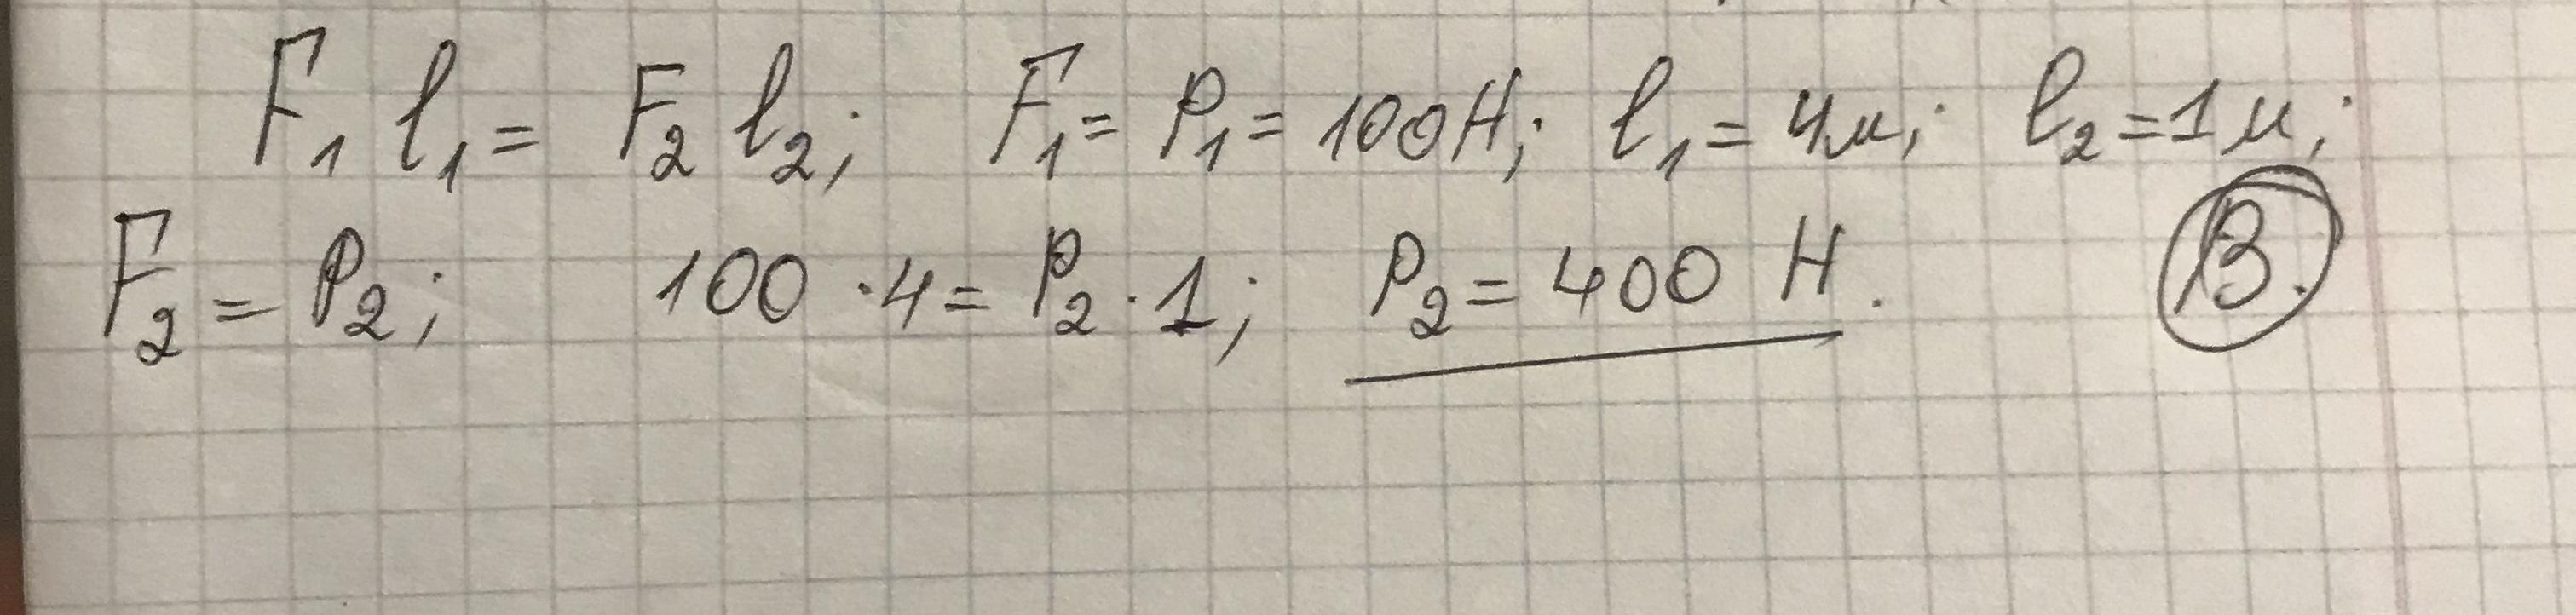 F₁ l₁ = F₂ l₂; F₁ = P₁ = 100 Н; l₁ = 4 м; l₂ = 1 м;
F₂ = P₂; 100 · 4 = P₂ · 1; P₂ = 400 Н. В.